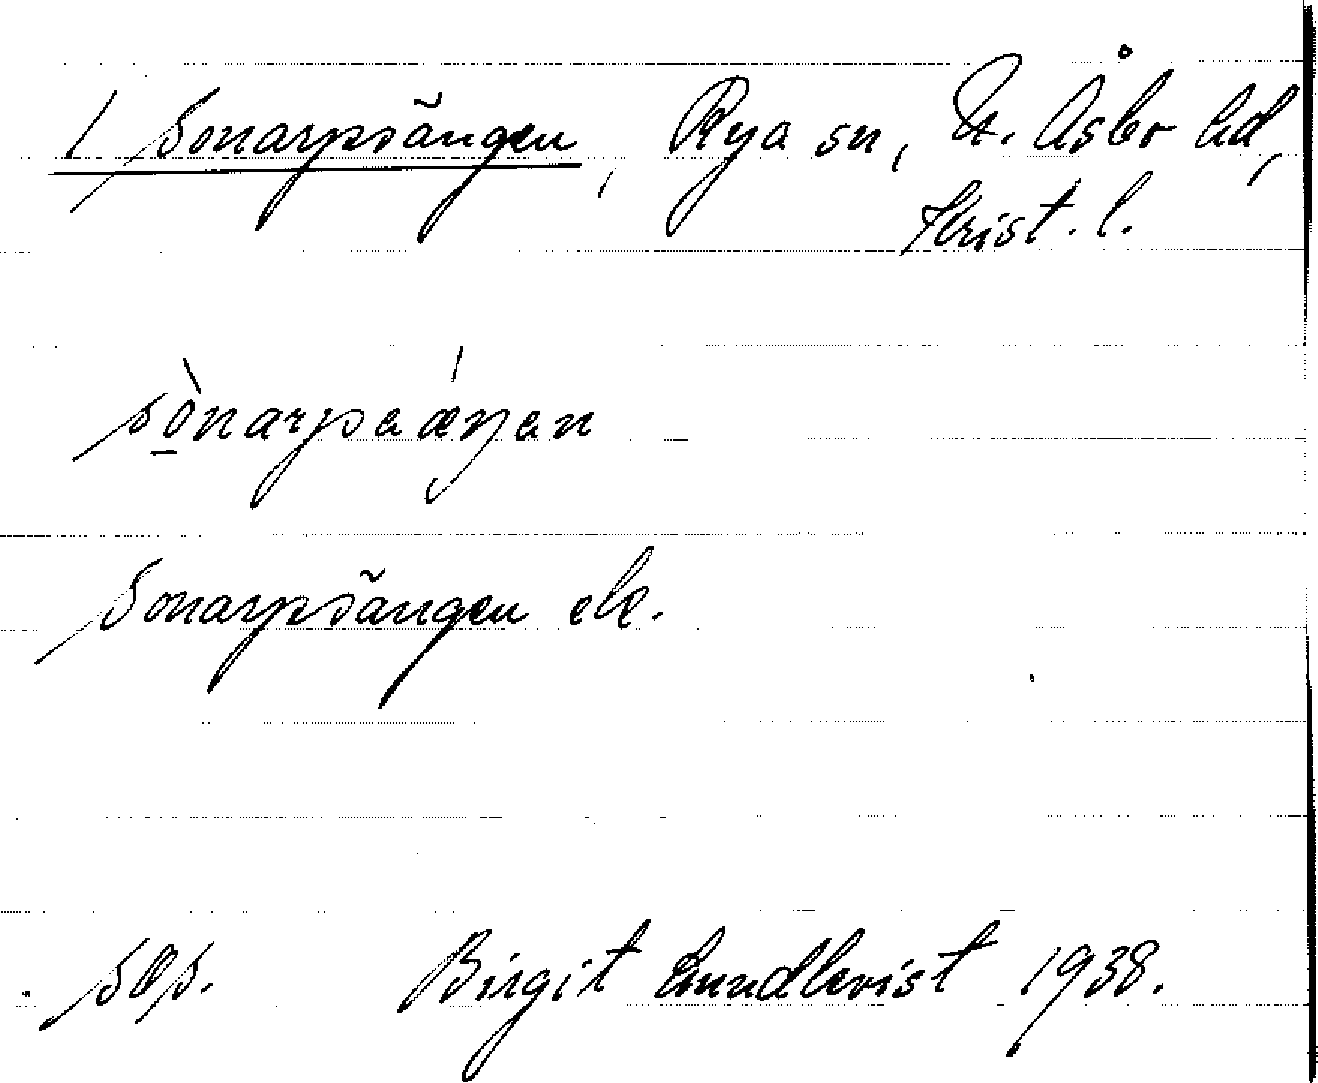 1 Sonarpsängen, Rya sn, N. Åsbo hd,
Krist. l.
sònarpsǽŋən
Sonarpsängen ek.
Birgit Lundkvist 1938.